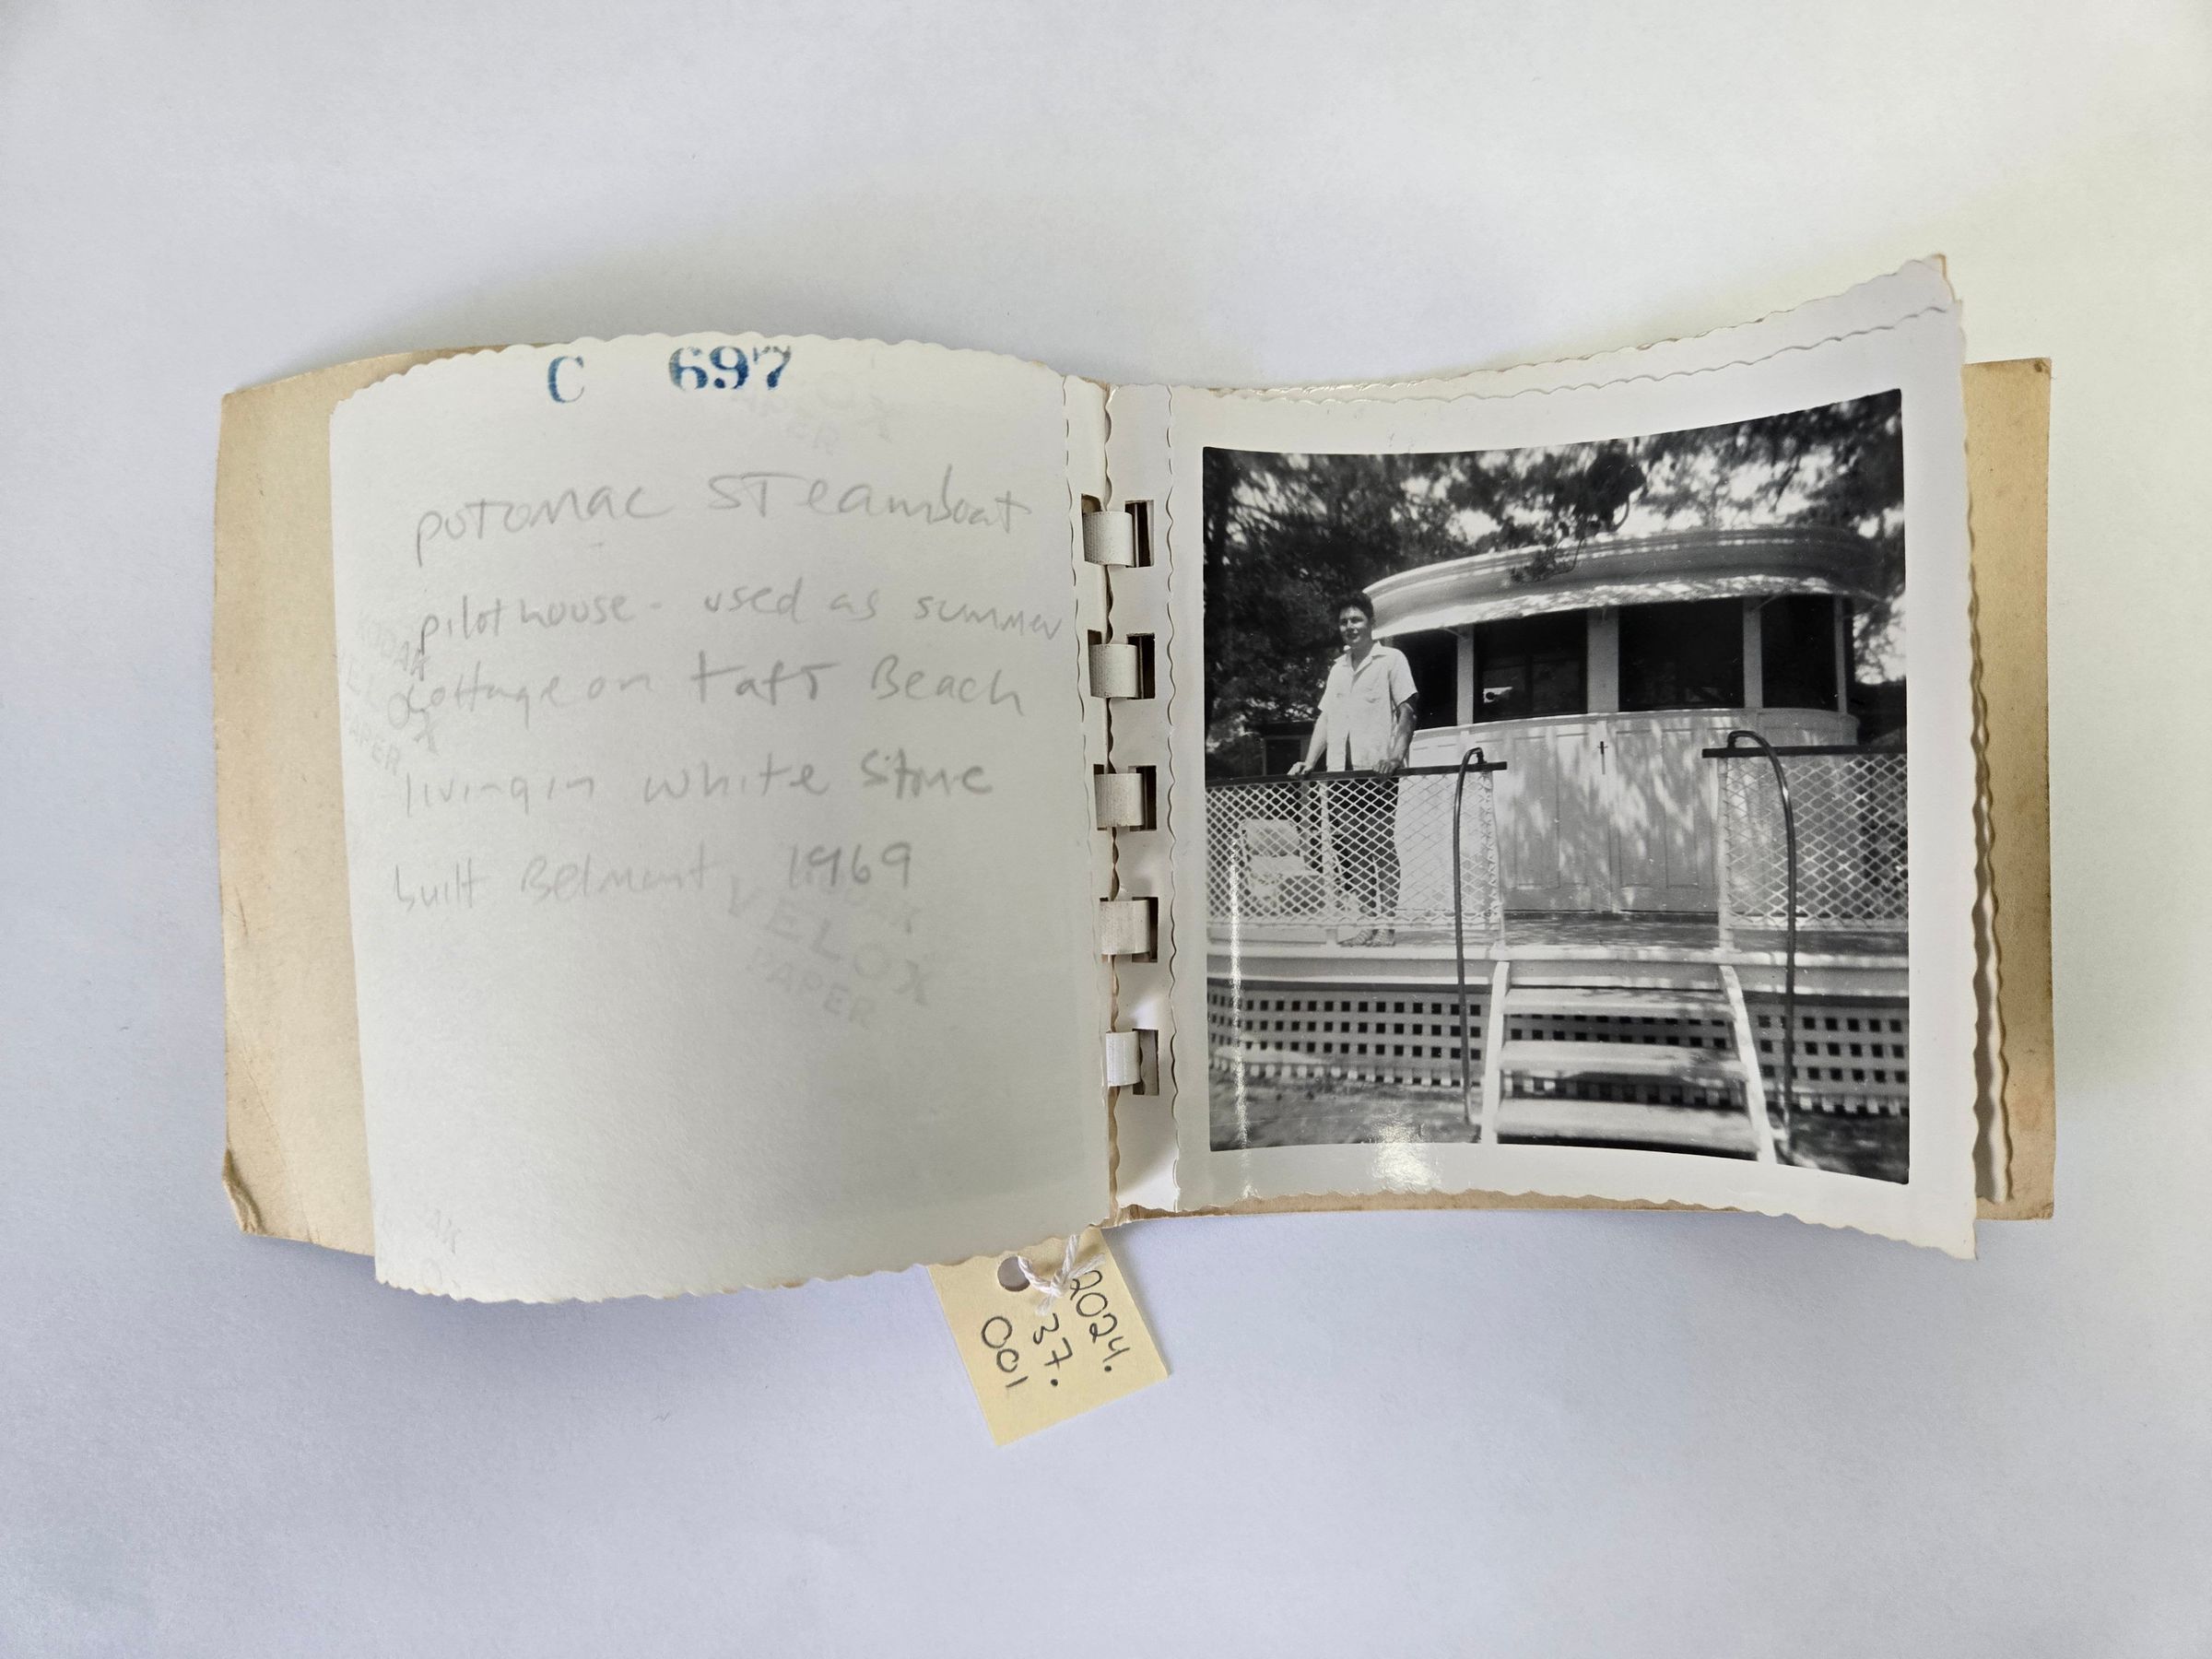 C 697
potomac Steamboat
pilothouse - used as summer
cottage on Taft Beach
living in white Stone
built Belmont 1969
KODAK
VELOX
PAPER
KODAK
VELOX
PAPER
2024.
37.
001